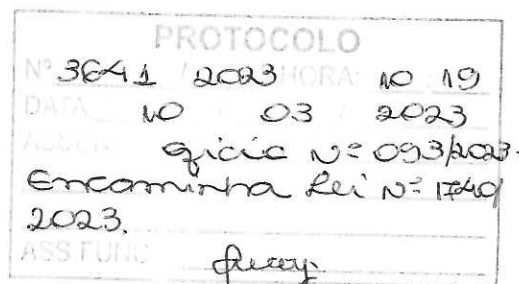 PROTOCOLO
Nº 3641 / 2023 HORA: 10 19
DATA 10 03 2023
Oficio Nº 093/2023.
Encaminha Lei Nº 1740/
2023.
ASS FUNC